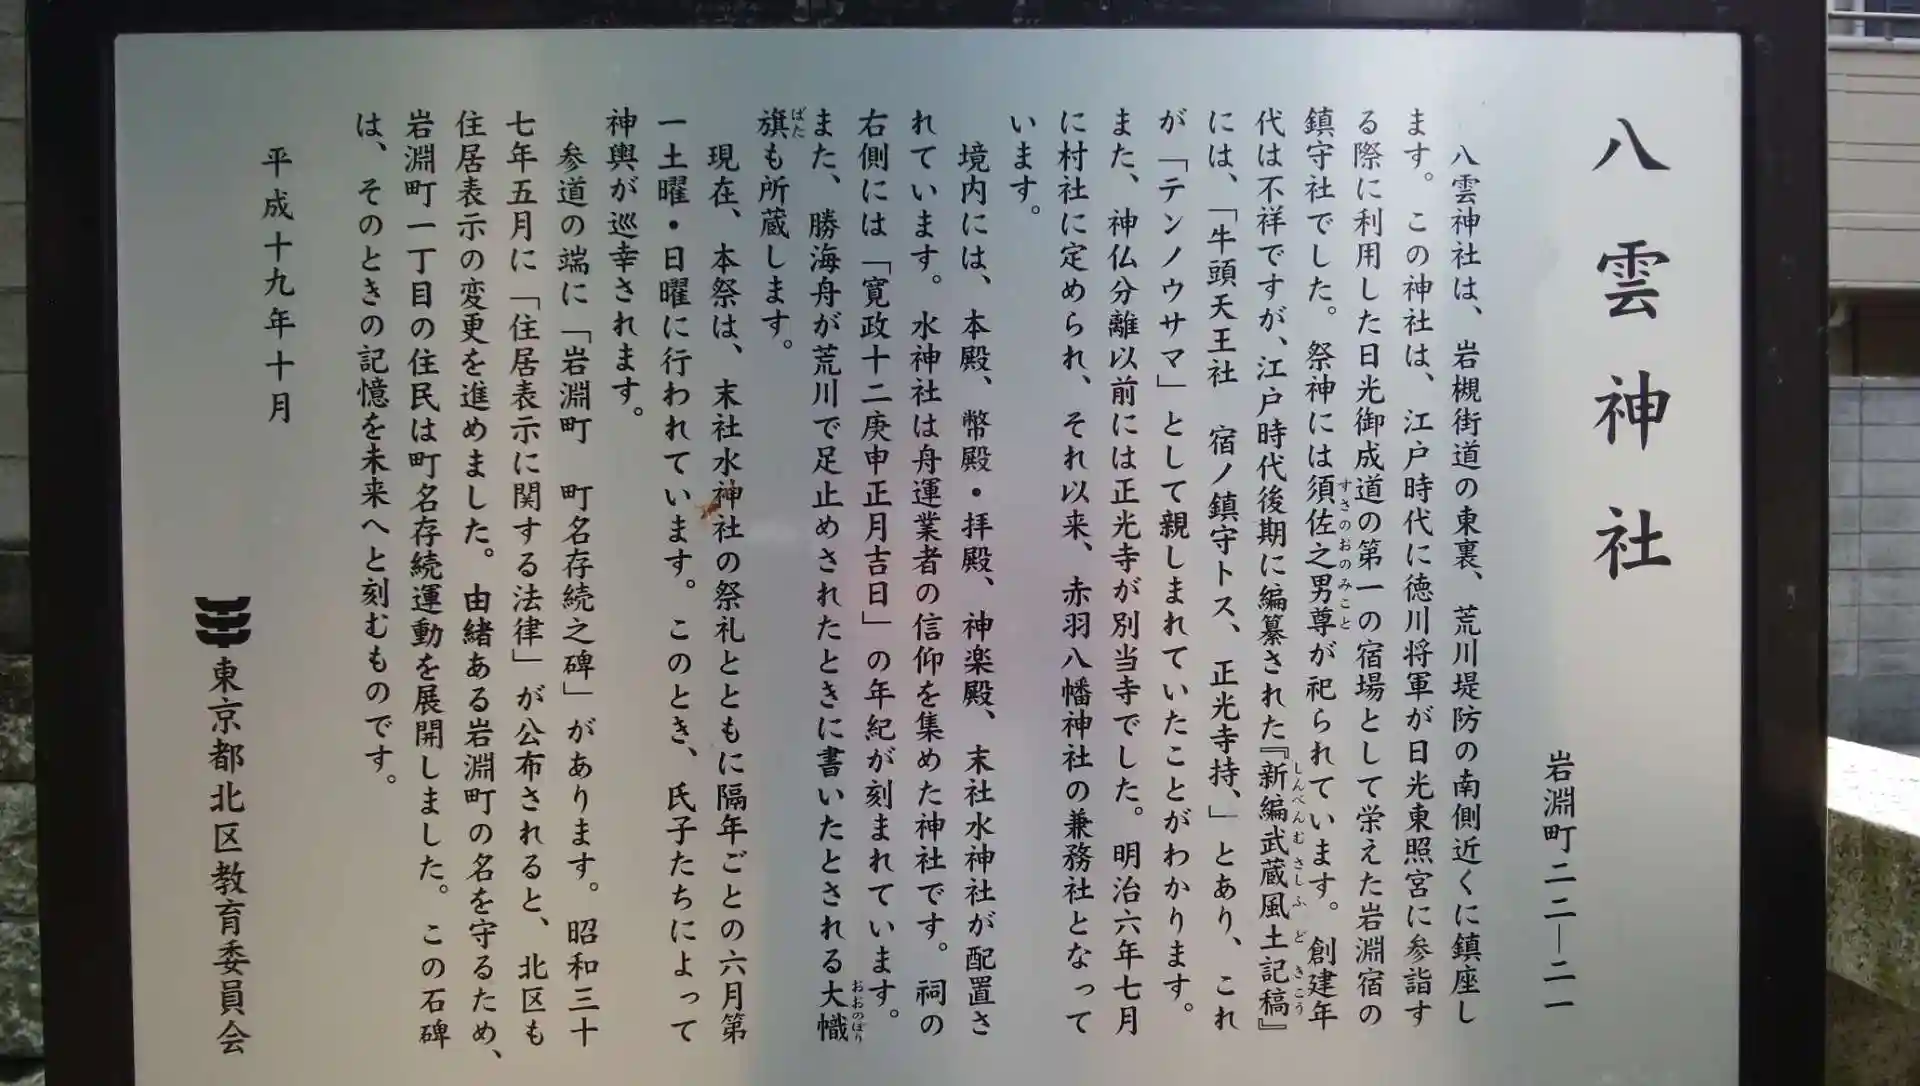 八雲神社
岩淵町二二―二一
八雲神社は、岩槻街道の東裏、荒川堤防の南側近くに鎮座し
ます。この神社は、江戸時代に徳川将軍が日光東照宮に参詣す
る際に利用した日光御成道の第一の宿場として栄えた岩淵宿の
鎮守社でした。祭神には須佐之男尊が祀られています。創建年
すさのおのみこと
代は不祥ですが、江戸時代後期に編纂された『新編武蔵風土記稿』
しんぺんむさしふどきこう
には、「牛頭天王社　宿ノ鎮守トス、正光寺持、」とあり、これ
が「テンノウサマ」として親しまれていたことがわかります。
また、神仏分離以前には正光寺が別当寺でした。明治六年七月
に村社に定められ、それ以来、赤羽八幡神社の兼務社となって
います。
境内には、本殿、幣殿・拝殿、神楽殿、末社水神社が配置さ
れています。水神社は舟運業者の信仰を集めた神社です。祠の
右側には「寛政十二庚申正月吉日」の年紀が刻まれています。
また、勝海舟が荒川で足止めされたときに書いたとされる大幟
おおのぼり
旗も所蔵します。
ばた
現在、本祭は、末社水神社の祭礼とともに隔年ごとの六月第
一土曜・日曜に行われています。このとき、氏子たちによって
神輿が巡幸されます。
参道の端に「岩淵町　町名存続之碑」があります。昭和三十
七年五月に「住居表示に関する法律」が公布されると、北区も
住居表示の変更を進めました。由緒ある岩淵町の名を守るため、
岩淵町一丁目の住民は町名存続運動を展開しました。この石碑
は、そのときの記憶を未来へと刻むものです。
平成十九年十月
東京都北区教育委員会